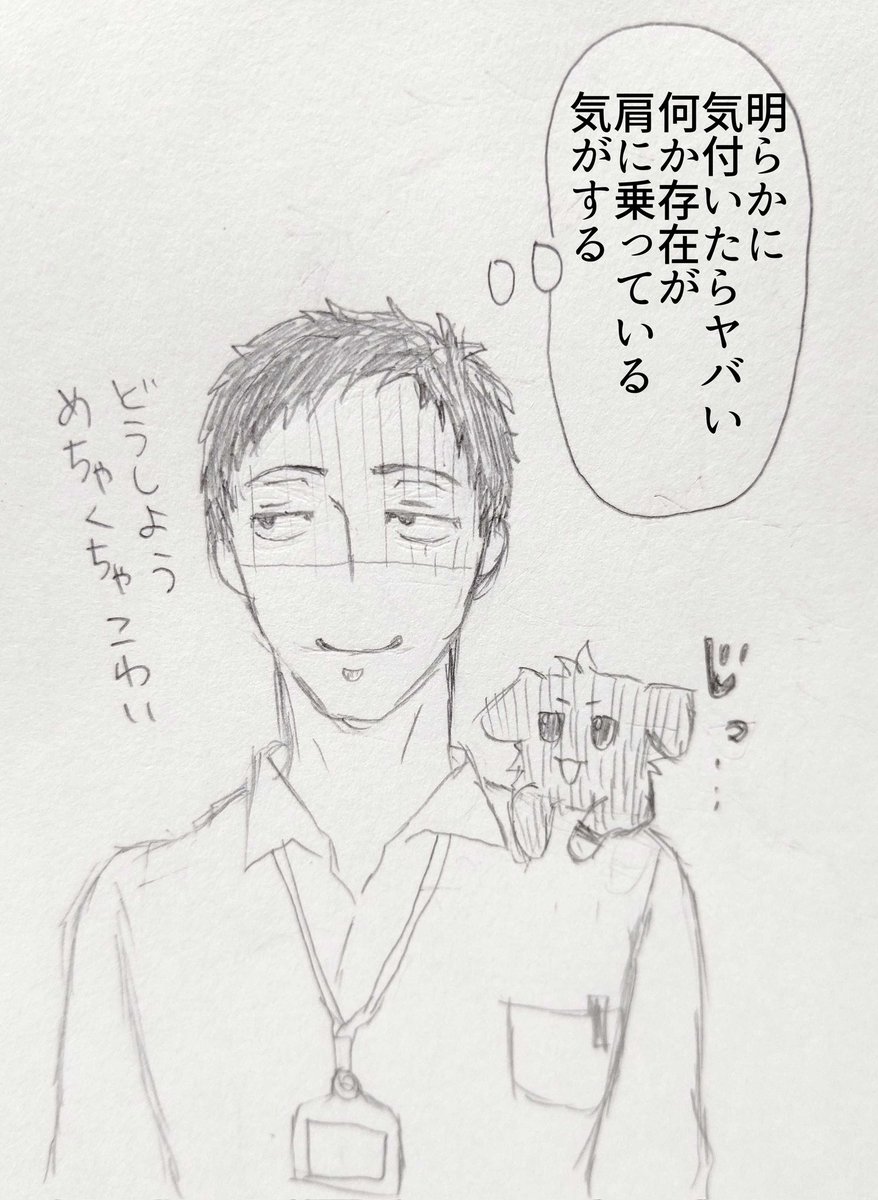 明らかに
気付いたらヤバい
何か存在が
肩に乗っている
気がする
じっ…
どうしよう
めちゃくちゃこわい